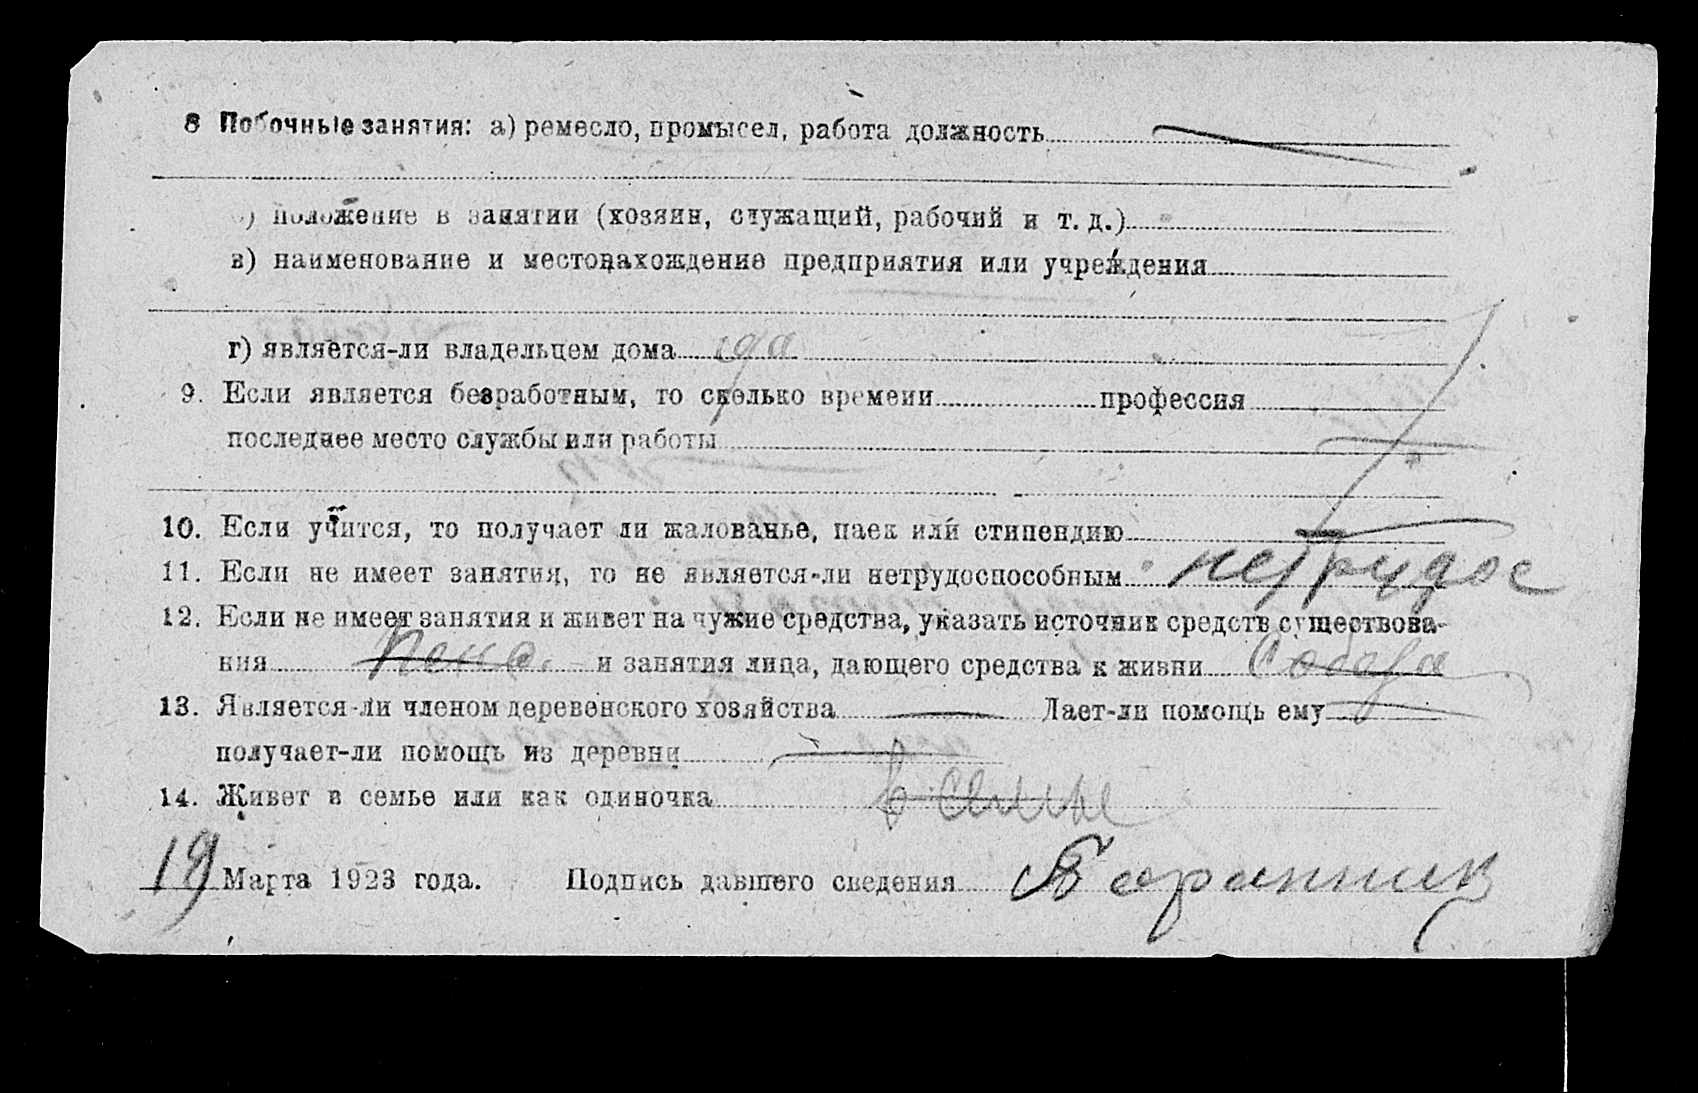 8 Побочные занятия: а) ремесло, промысел, работа должность
б) положение в занятии (хозяин, служащий, рабочий и т. д.)
в) наименование и местонахождение предприятия или учреждения
г) является-ли владельцем дома да
9. Если является безработным, то сколько времени профессия
последнее место службы или работы
10. Если учится, то получает ли жалованье, паек или стипендию
11. Если не имеет занятия, то не является-ли нетрудоспособным нетрудос
12. Если не имеет занятия и живет на чужие средства, указать источник средств существова-
ния и занятия лица, дающего средства к жизни
13. Является-ли членом деревенского хозяйства Дает-ли помощь ему
получает-ли помощь из деревни
14. Живет в семье или как одиночка в семье
19 Марта 1923 года. Подпись давшего сведения